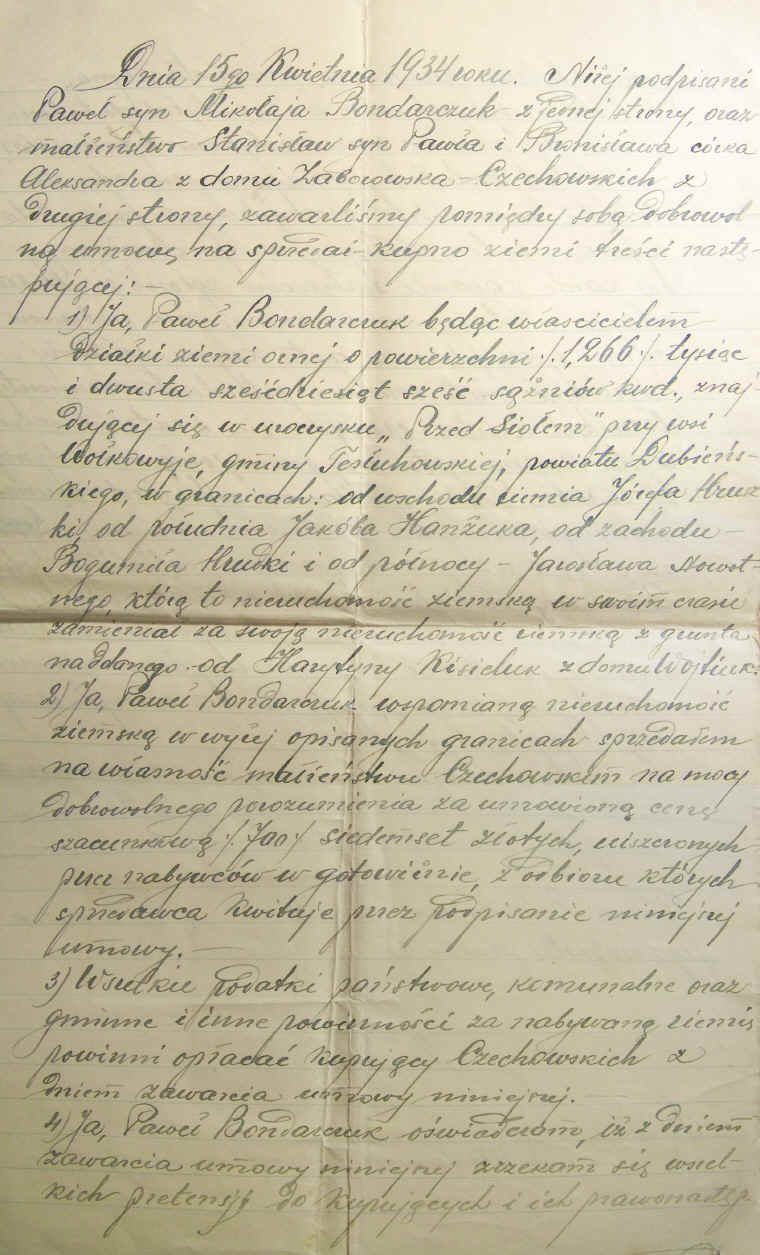 Dnia 15go Kwietnia 1934 roku. Niżej podpisani
Paweł syn Mikołaja Bondarczuk z jednej strony, oraz
małżeństwo Stanisław syn Pawła i Bronisława córka
Aleksandra z domu Zaborowska - Czechowskich z
drugiej strony, zawarliśmy pomiędzy sobą dobrowol
ną umowę na sprzedaż-kupno ziemi treści nastę-
pującej: -
1) Ja, Paweł Bondarczuk będąc właścicielem
działki ziemi ornej o powierzchni ./. 1,266 ./. tysiąc
i dwusta sześćdziesiąt sześć sążniów kwd., znaj-
dującej się w uroczysku „Przed Siołem" przy wsi
Wołkowyje, gminy Tesłuhowskiej, powiatu Dubieńs-
kiego, w granicach: od wschodu ziemia Józefa Hrusz
ki, od południa Jakóba Hanżuka, od zachodu -
Bogumiła Hruski i od północy - Jarosława Nowot-
nego, którą to nieruchomość ziemską w swoim czasie
zamieniał za swoją nieruchomość ziemską z gruntu
naddanego od Harytyny Kisieluk z domu Wojtiuk.
2) Ja, Paweł Bondarczuk wspomianą nieruchomość
ziemską w wyżej opisanych granicach sprzedałem
na własność małżeństwu Czechowskim na mocy
dobrowolnego porozumienia za umówioną cenę
szacunkową ./. 700 ./. siedemset złotych, uiszczonych
przez nabywców w gotowiźnie, z odbioru których
sprzedawca kwituje przez podpisanie niniejszej
umowy. -
3) Wszelkie podatki państwowe, komunalne oraz
gminne i inne powinności za nabywaną ziemię
powinni opłacać kupujący Czechowskich z
dniem zawarcia umowy niniejszej.
4) Ja, Paweł Bondarczuk oświadczam, iż z dniem
zawarcia umowy niniejszej zrzekam się wszel-
kich pretensji do kupujących i ich prawonastęp-